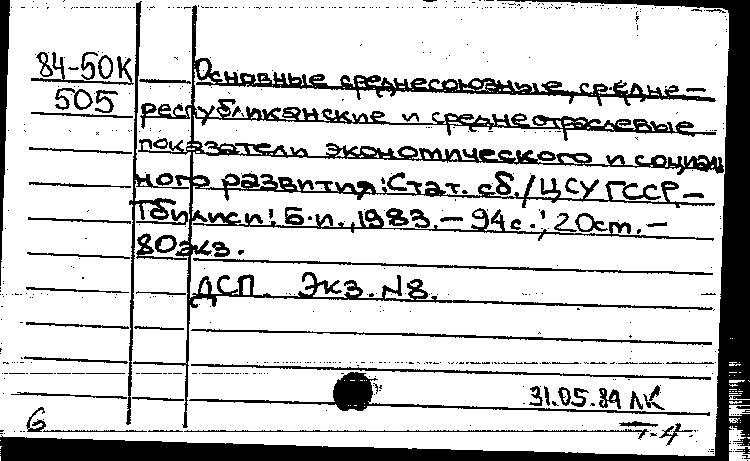 84-50К
505
Основные среднесоюзные, средне-
республиканские и среднеотраслевые
показатели экономического и социаль
ного развития: Стат. сб./ЦСУ ГССР,-
Тбилиси: Б.и., 1983. - 94 с.; 20 см. -
80 экз.
ДСП. Экз. N8.
31.05.89 ЛК
6